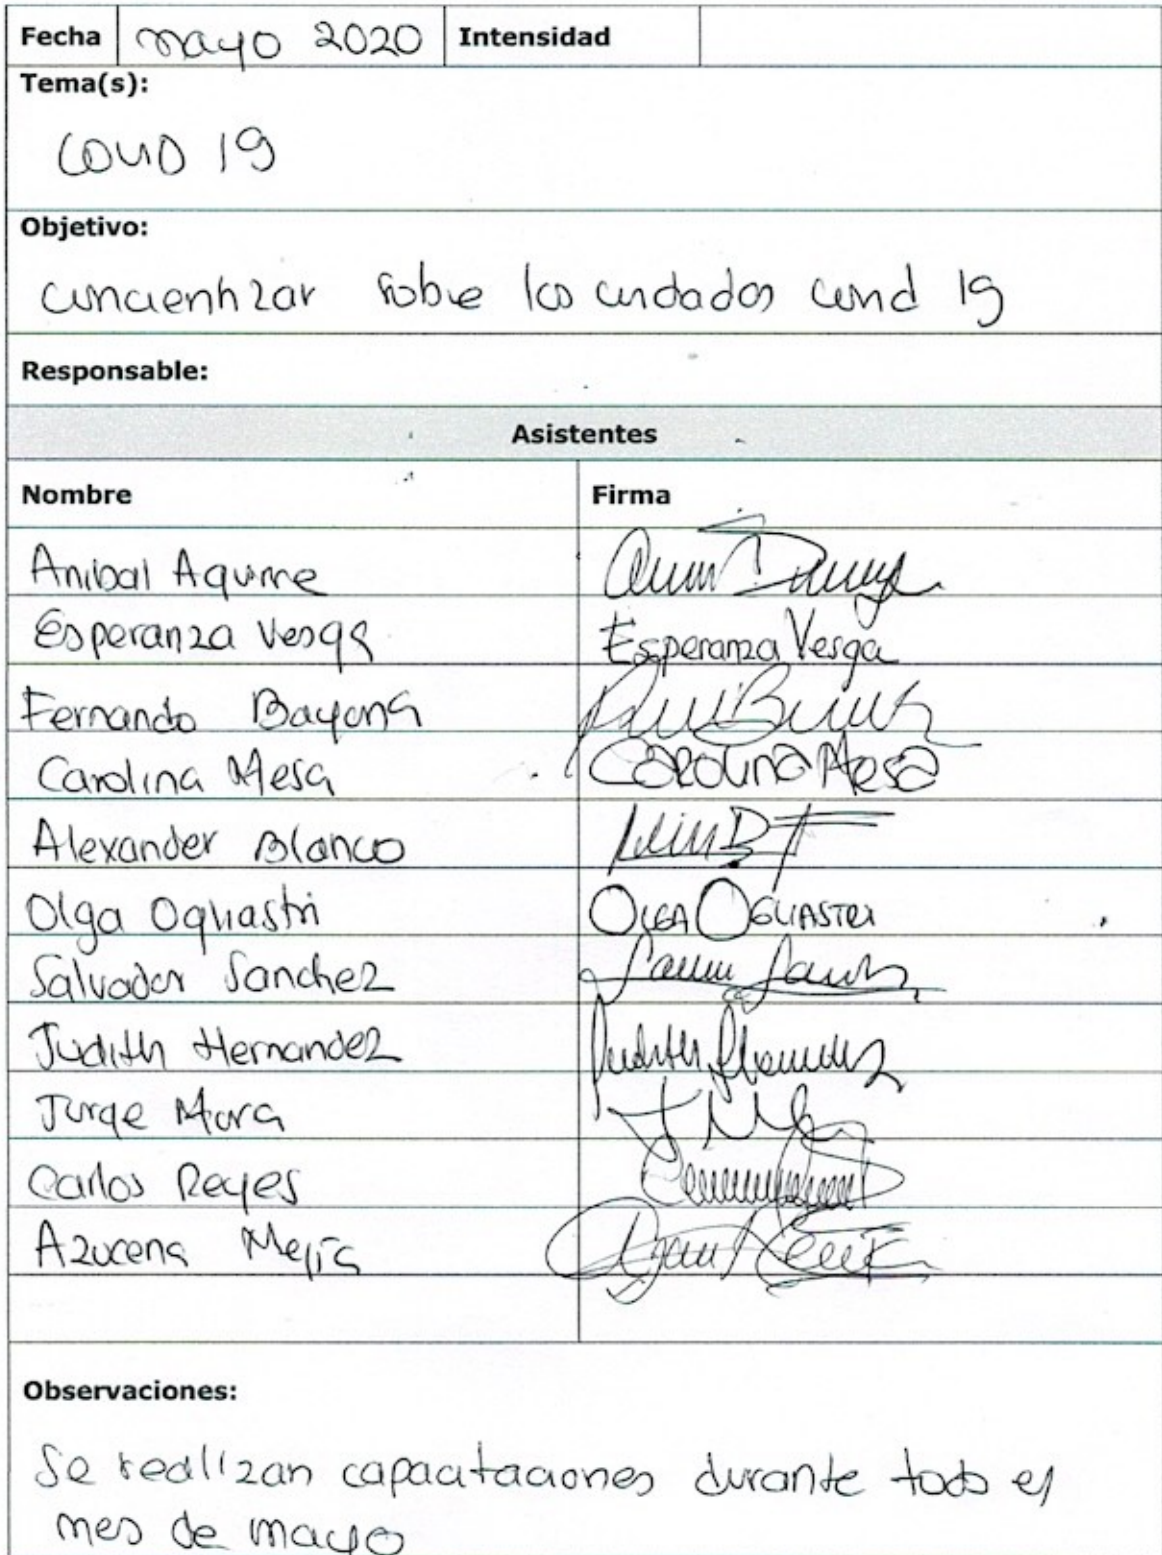 Fecha mayo 2020 Intensidad
Tema(s):
COVID 19
Objetivo:
concientizar sobre los cuidados covid 19
Responsable:
Asistentes
Nombre Firma
Anibal Aguirre
Esperanza Vesga Esperanza Vesga
Fernando Bayona
Carolina Mesa Carolina Mesa
Alexander Blanco
Olga Ogliastri Olga Ogliastri
Salvador Sanchez
Judith Hernandez Judith Hernandez
Jorge Mora
Carlos Reyes
Azucena Mejía
Observaciones:
Se realizan capacitaciones durante todo el
mes de mayo